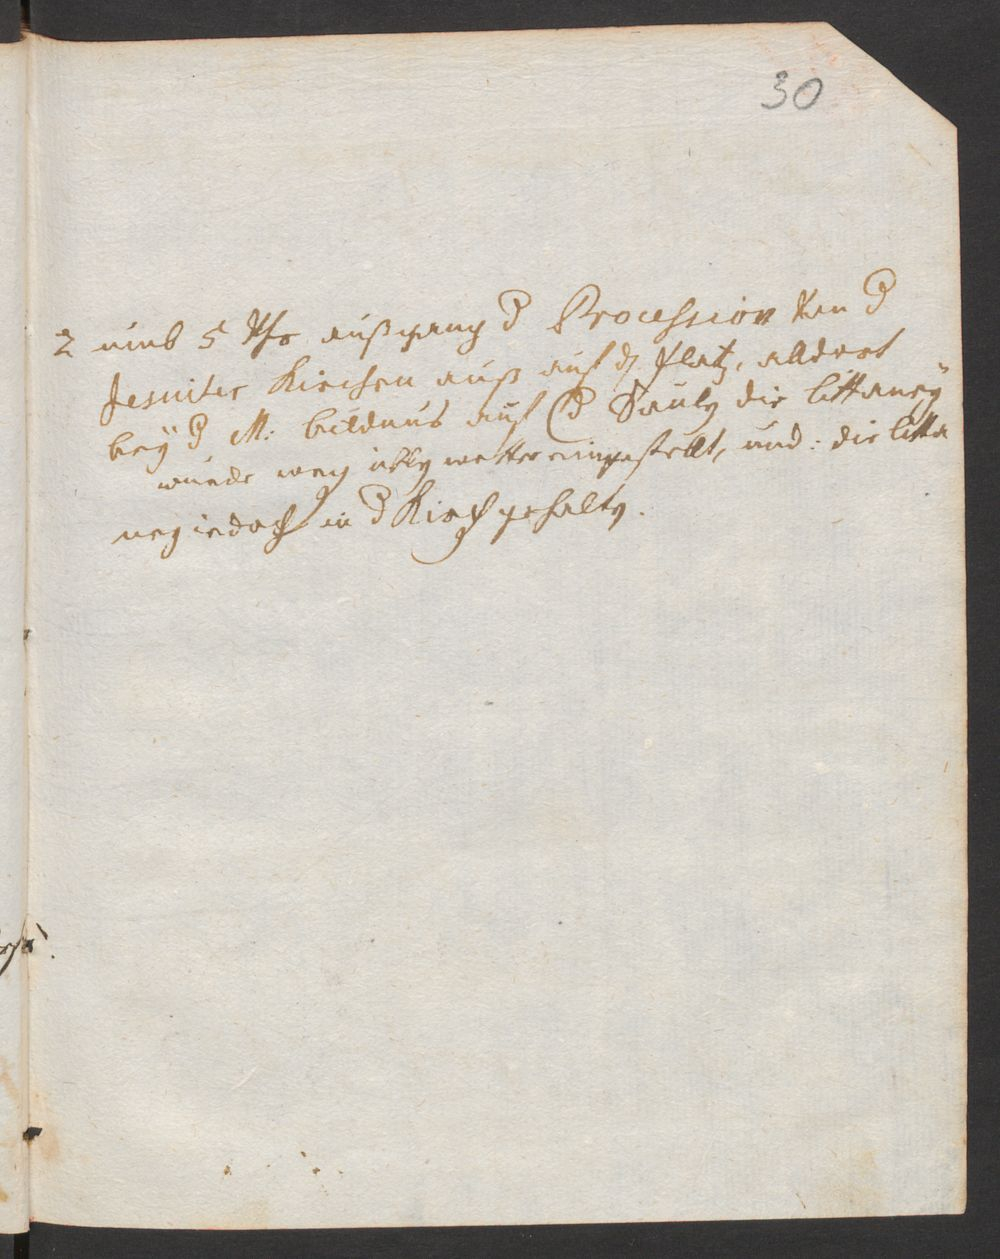 30
2 umb 5 Uhr außgang d Procession von d
Jesuiter Kirchen auß auf d Platz, alldort
beÿ d M: bildnus auf d Säuln die littaneÿ
wurde weg üblen wetter eingestellt, und: die litta
neÿ iedoch in d Kirch gehalten.